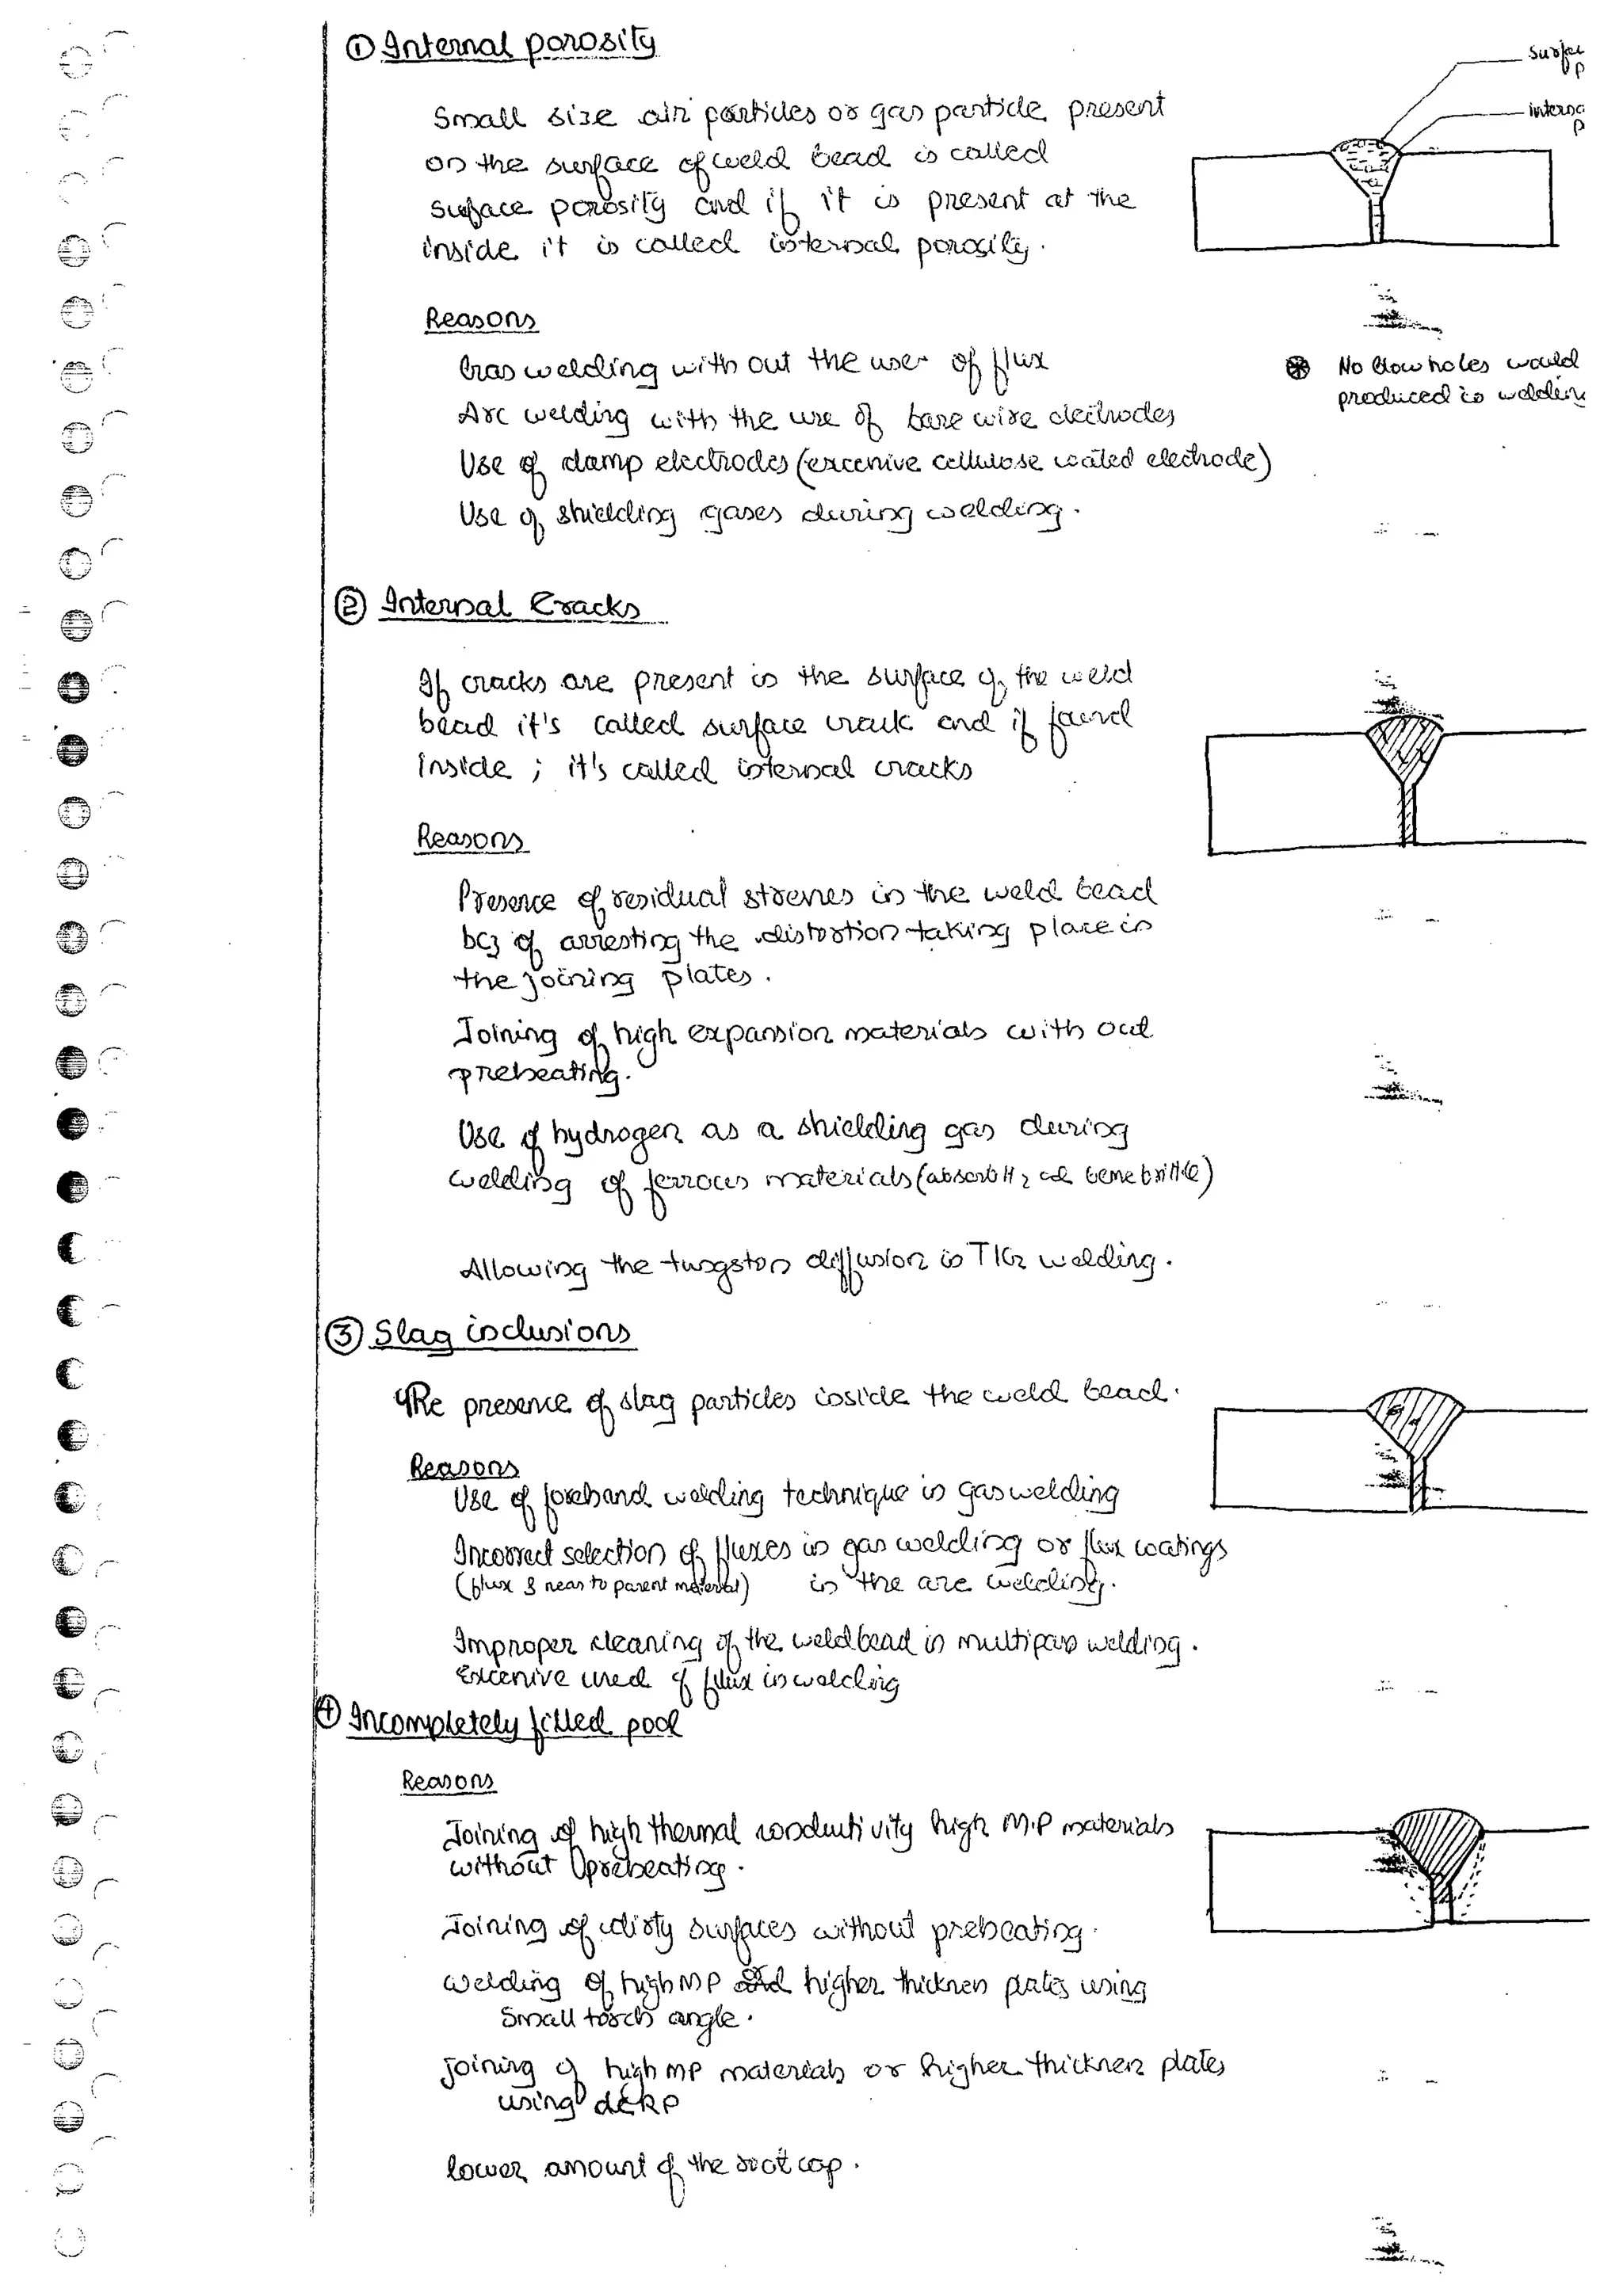 ① Internal porosity
Small size air particles or gas particle present
on the surface of weld bead is called
surface porosity and if it is present at the
inside it is called internal porosity.
Reasons
Gas welding with out the use of flux
Arc welding with the use of bare wire electrodes
Use of damp electrodes (excessive cellulose coated electrode)
Use of shielding gases during welding.
surfac
p
interna
p
⊛ No blow holes would
produced in weldin
② Internal Cracks
If cracks are present in the surface of the weld
bead it's called surface crack and if found
inside ; it's called internal cracks
Reasons
Presence of residual stresses in the weld bead
bcz of arresting the distortion taking place in
the joining plates.
Joining of high expansion materials with out
preheating.
Use of hydrogen as a shielding gas during
welding of ferrous materials (absorb H2 brittle)
Allowing the tungston diffusion in TIG welding.
③ Slag inclusions
The presence of slag particles inside the weld bead.
Reasons
Use of forehand welding technique in gas welding
Incorrect selection of fluxes in gas welding or flux coatings
(flux near to parent material) in the arc welding.
Improper cleaning of the weld bead in multipass welding.
Excessive used of flux in welding
④ Incompletely filled pool
Reasons
Joining of high thermal conductivity high M.P materials
without preheating.
Joining of dirty surfaces without preheating.
welding of high MP and higher thickness plates using
small torch angle.
joining of high MP materials or higher thickness plates
using dcRP
lower amount of the root gap.